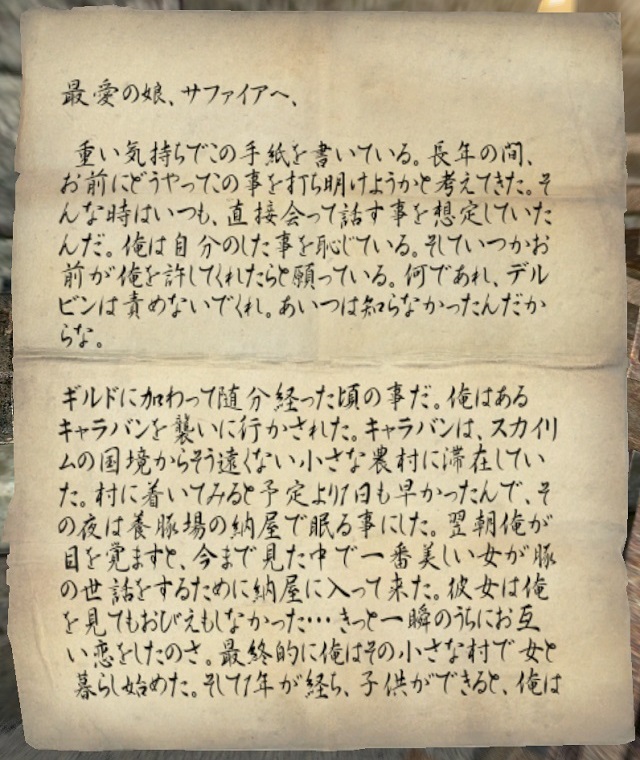 最愛の娘、サファイアへ、
重い気持ちでこの手紙を書いている。長年の間、
お前にどうやってこの事を打ち明けようかと考えてきた。そ
んな時はいつも、直接会って話す事を想定していた
んだ。俺は自分のした事を恥じている。そしていつかお
前が俺を許してくれたらと願っている。何であれ、デル
ビンは責めないでくれ。あいつは知らなかったんだか
らな。
ギルドに加わって随分経った頃の事だ。俺はある
キャラバンを襲いに行かされた。キャラバンは、スカイリ
ムの国境からそう遠くない小さな農村に滞在してい
た。村に着いてみると予定より1日も早かったんで、そ
の夜は養豚場の納屋で眠る事にした。翌朝俺が
目を覚ますと、今まで見た中で一番美しい女が豚
の世話をするために納屋に入って来た。彼女は俺
を見てもおびえもしなかった…きっと一瞬のうちにお互
い恋をしたのさ。最終的に俺はその小さな村で女と
暮らし始めた。そして1年が経ち、子供ができると、俺は